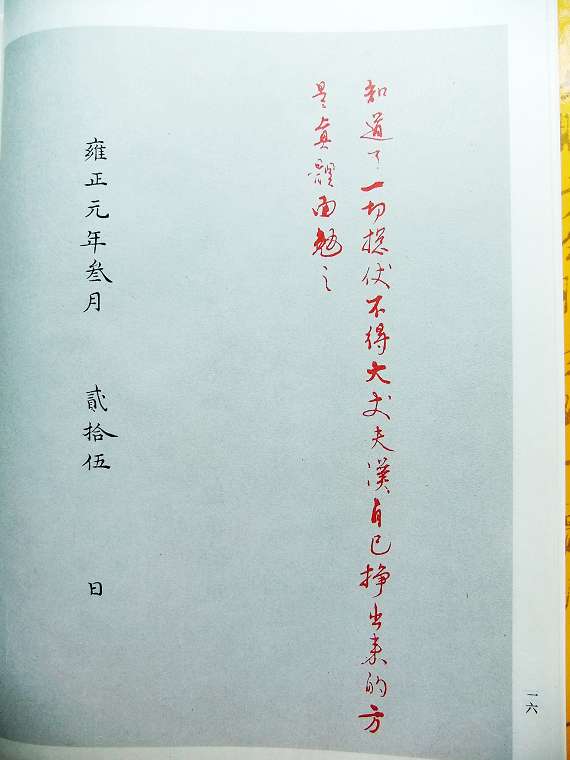 知道了一切摠伏不得大丈夫漢自己掙出来的方
是真體面勉之
雍正元年叁月 貳拾伍 日
一六